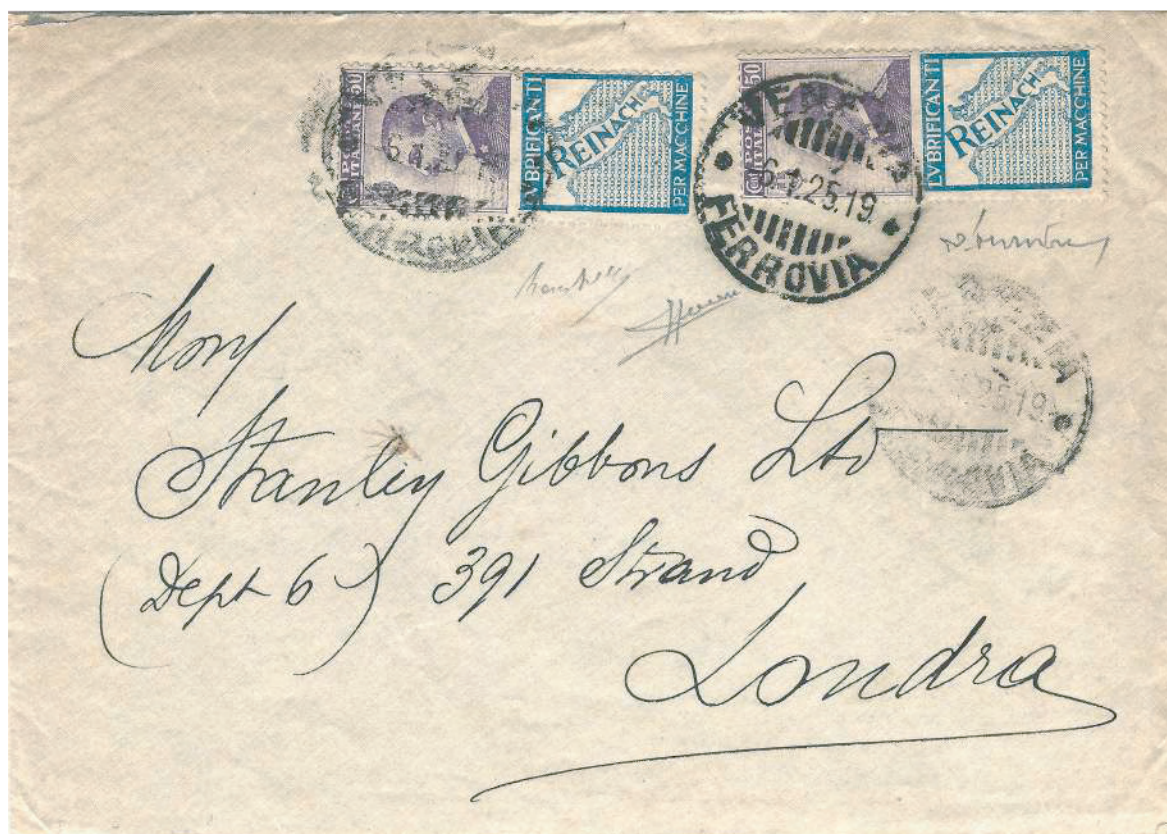 POSTE ITALIANE
50
LVBRIFICANTI
REINACH
PER MACCHINE
POSTE ITALIANE
Cent 50
LVBRIFICANTI
REINACH
PER MACCHINE
FERROVIA
25.19
FERROVIA
25.19
Stanley Gibbons Ltd
(Dept 6) 391 Strand
Londra